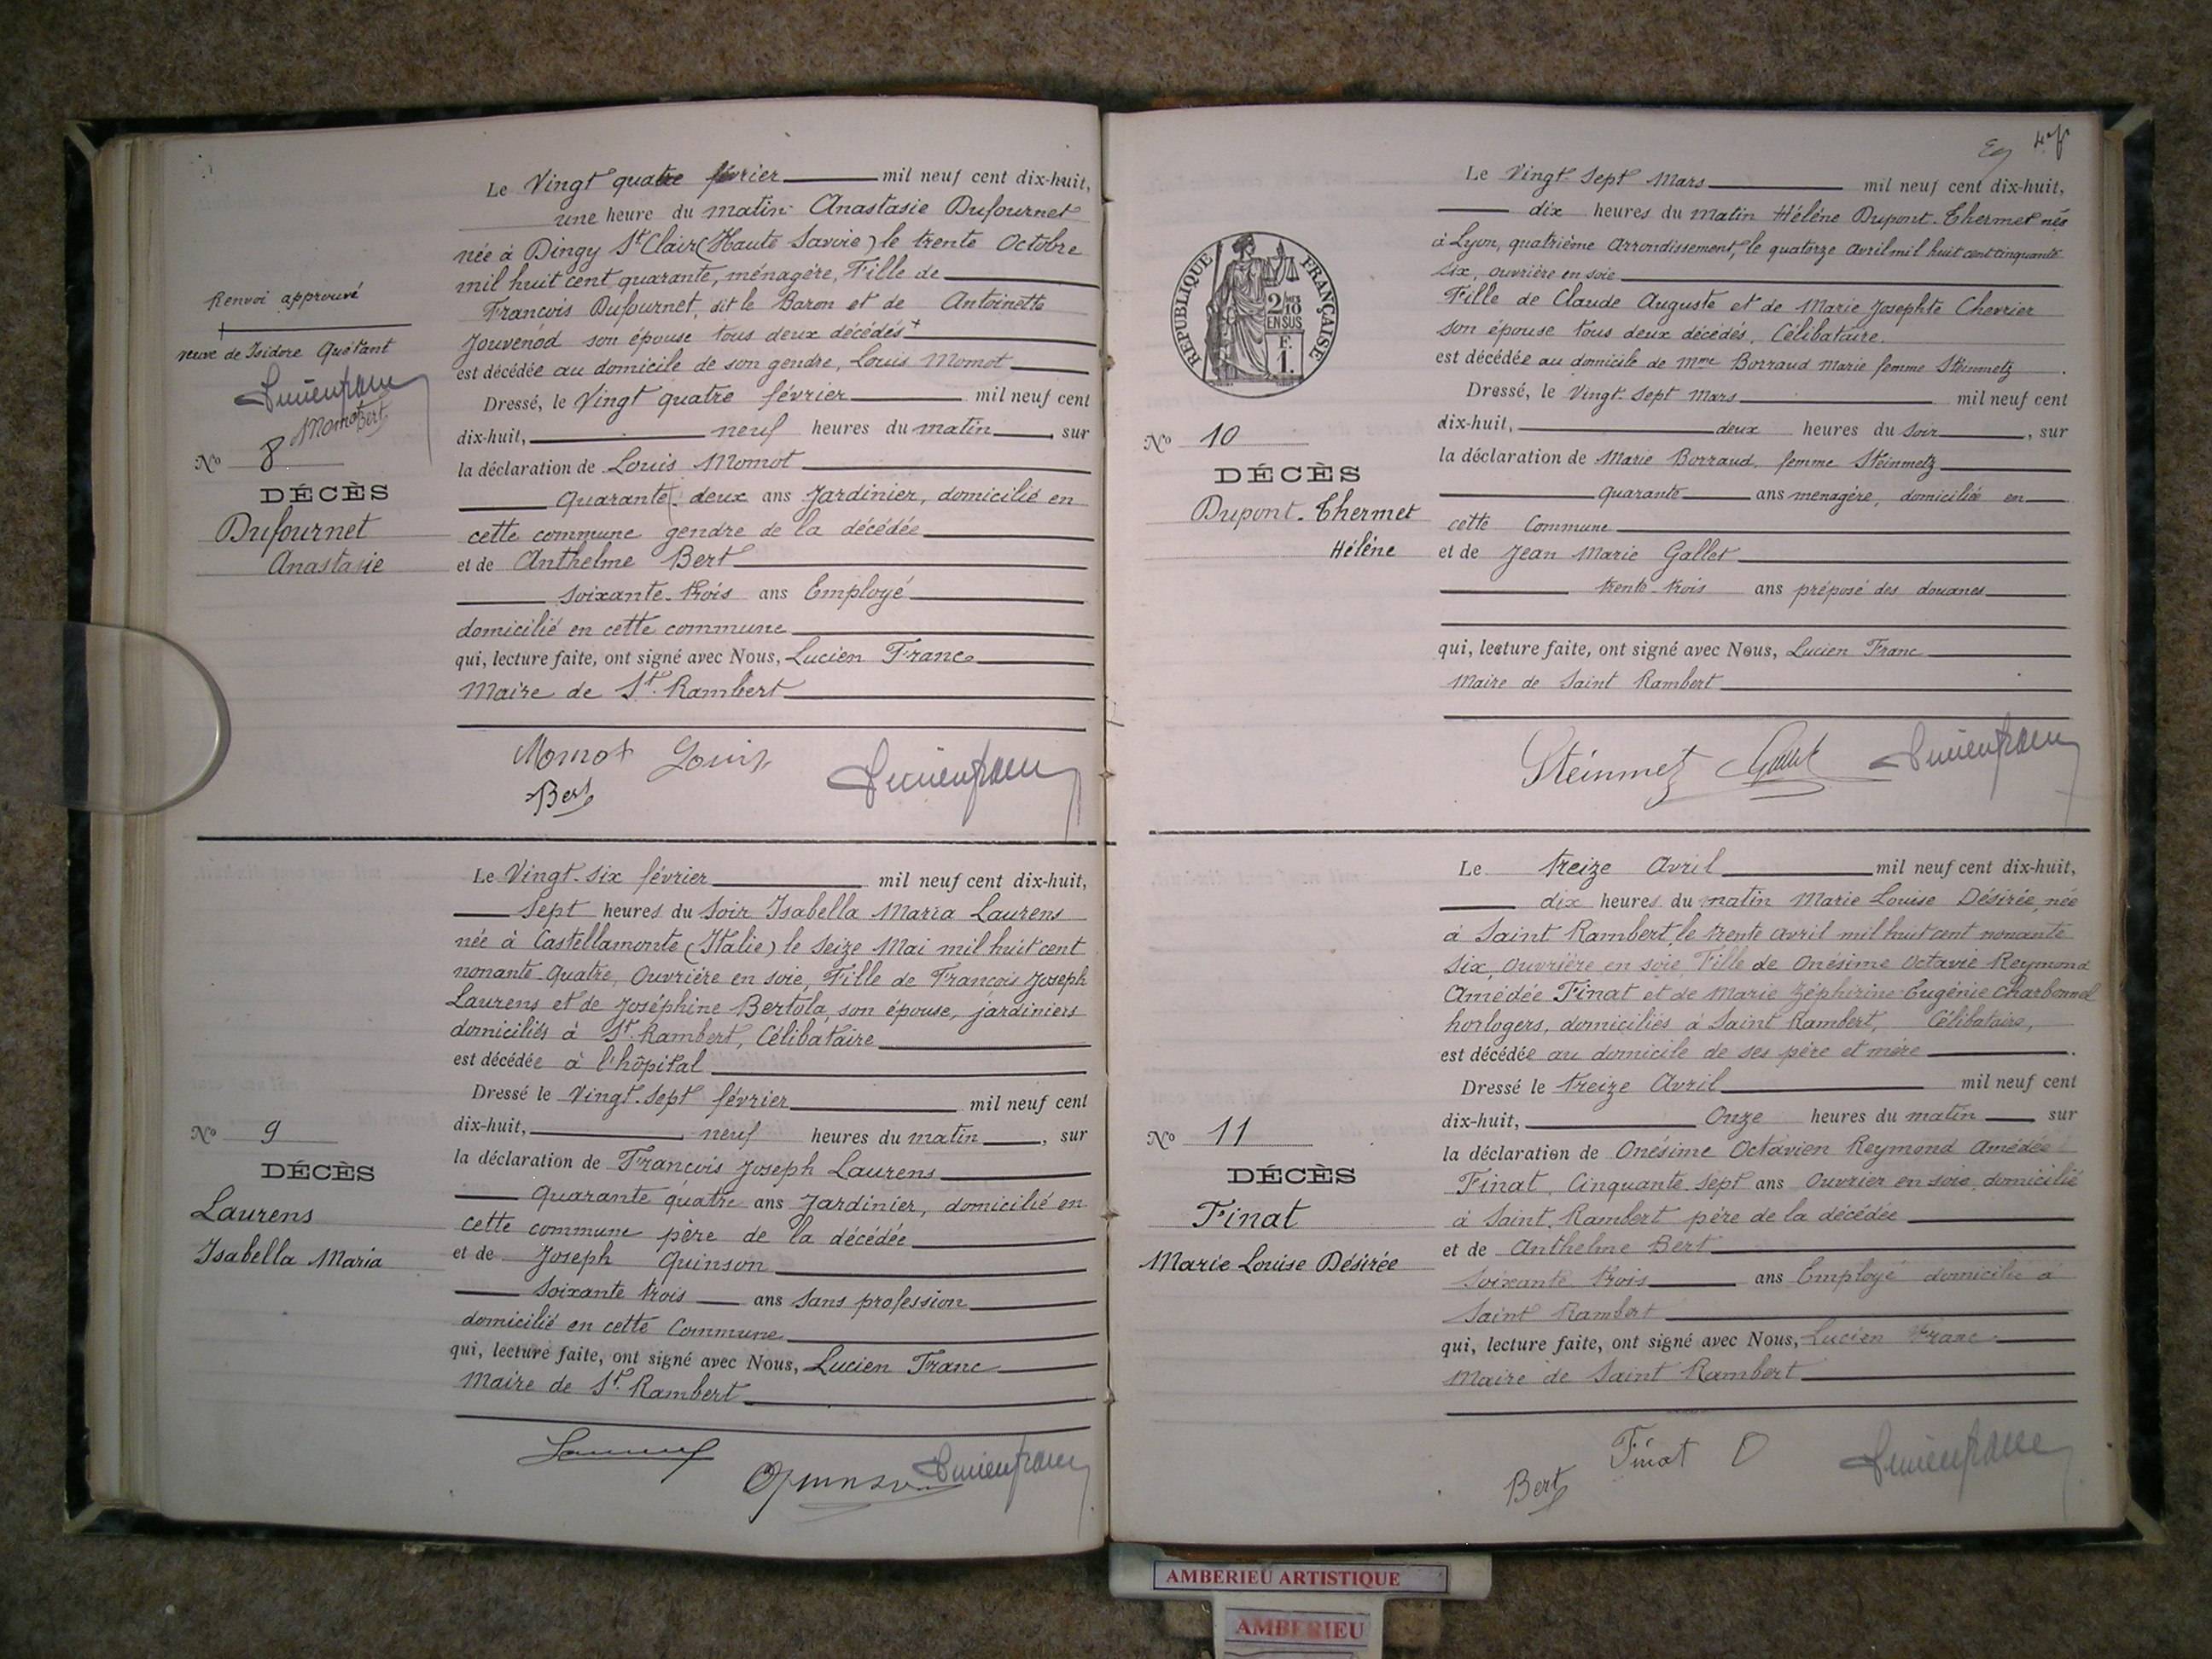 Renvoi approuvé
veuve de Isidore Quétant
Momot Bert
Nº 8
DÉCÈS
Dufournet
Anastasie
Le Vingt quatre février mil neuf cent dix-huit,
une heure du matin Anastasie Dufournet
née à Dingy St Clair (Haute Savoie) le trente Octobre
mil huit cent quarante, ménagère, Fille de
François Dufournet, dit le Baron et de Antoinette
Jouvenod son épouse tous deux décédés +
est décédée au domicile de son gendre, Louis Momot
Dressé, le Vingt quatre février mil neuf cent
dix-huit, neuf heures du matin, sur
la déclaration de Louis Momot
Quarante deux ans Jardinier, domicilié en
cette commune gendre de la décédée
et de Anthelme Bert
Soixante-trois ans Employé
domicilié en cette commune
qui, lecture faite, ont signé avec Nous, Lucien Franc
Maire de St. Rambert
Momot Louis
Bert
Nº 9
DÉCÈS
Laurens
Isabella Maria
Le Vingt-six février mil neuf cent dix-huit,
Sept heures du Soir Isabella Maria Laurens
née à Castellamonte (Italie) le Seize Mai mil huit cent
nonante-quatre, Ouvrière en soie, Fille de François Joseph
Laurens et de Joséphine Bertola, son épouse, jardiniers
domiciliés à St. Rambert, Célibataire
est décédée à l'hôpital
Dressé le Vingt-sept février mil neuf cent
dix-huit, neuf heures du matin, sur
la déclaration de François Joseph Laurens
Quarante quatre ans Jardinier, domicilié en
cette commune père de la décédée
et de Joseph Quinson
Soixante trois ans Sans profession
domicilié en cette Commune
qui, lecture faite, ont signé avec Nous, Lucien Franc
Maire de St. Rambert
REPUBLIQUE FRANÇAISE
2/10
EN SUS
F.
1.
Nº 10
DÉCÈS
Dupont-Thermet
Hélène
Le Vingt-Sept Mars mil neuf cent dix-huit,
dix heures du matin Hélène Dupont-Thermet née
à Lyon, quatrième Arrondissement, le quatorze Avril mil huit cent cinquante
six, ouvrière en soie
Fille de Claude Auguste et de Marie Josephte Chevrier
son épouse tous deux décédés, Célibataire.
est décédée au domicile de Mme Borraud Marie femme Steinmetz.
Dressé, le Vingt-Sept Mars mil neuf cent
dix-huit, deux heures du Soir, sur
la déclaration de Marie Borraud femme Steinmetz
quarante ans ménagère, domiciliée en
cette Commune
et de Jean Marie Gallet
trente-trois ans préposé des douanes
qui, lecture faite, ont signé avec Nous, Lucien Franc
Maire de Saint Rambert
Steinmetz
Nº 11
DÉCÈS
Finat
Marie Louise Désirée
Le treize Avril mil neuf cent dix-huit,
dix heures du matin Marie Louise Désirée, née
à Saint Rambert, le trente avril mil huit cent nonante
six, ouvrière en soie, Fille de Onésime Octavie Reymond
Amédée Finat et de Marie Zéphirine Eugénie Charbonnel
horlogers, domiciliés à Saint Rambert, Célibataire,
est décédée au domicile de ses père et mère.
Dressé le treize Avril mil neuf cent
dix-huit, Onze heures du matin sur
la déclaration de Onésime Octavien Reymond Amédée
Finat, Cinquante-Sept ans Ouvrier en soie, domicilié
à Saint Rambert père de la décédée
et de Anthelme Bert
Soixante trois ans Employé domicilié à
Saint Rambert
qui, lecture faite, ont signé avec Nous, Lucien Franc
Maire de Saint Rambert
Finat O
Bert
AMBERIEU ARTISTIQUE
AMBERIEU